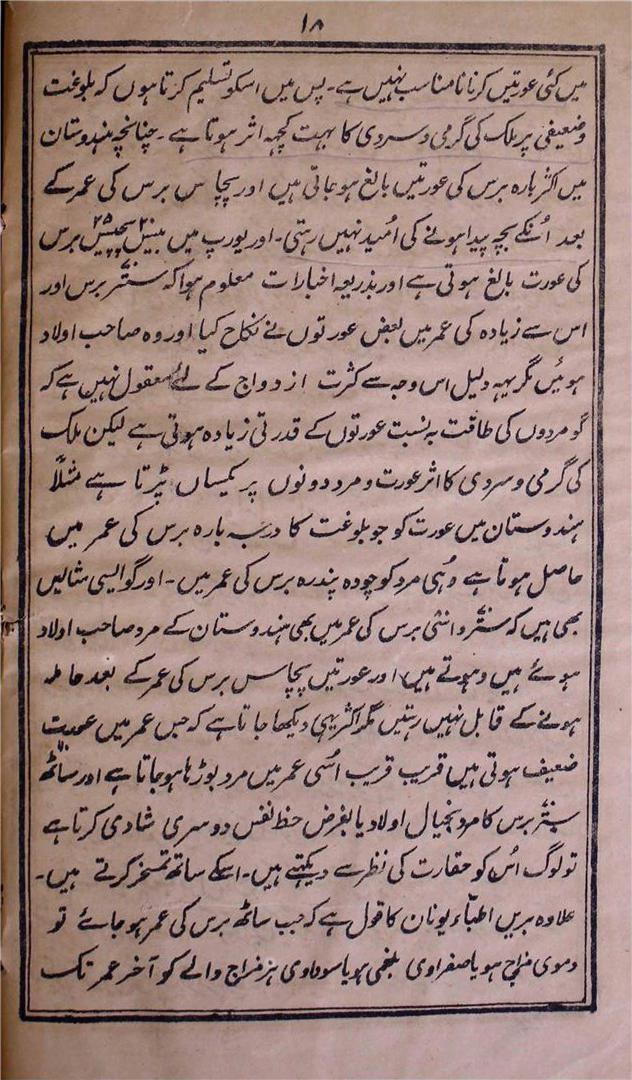 ۱۸
میں کئی عورتیں کرنا نامناسب نہیں ہے۔ پس میں اسکو تسلیم کرتا ہوں کہ بلوغت
وضعیفی پر ملک کی گرمی و سردی کا بہت کچہہ اثر ہوتا ہے۔ چنانچہ ہندوستان
میں اکثر بارہ برس کی عورتیں بالغ ہو جاتی ہیں اور پچاس برس کی عمر کے
بعد اُنکے بچہ پیدا ہونے کی اُمید نہیں رہتی۔ اور یورپ میں بیس۲۰ پچیس۲۵ برس
کی عورت بالغ ہوتی ہے اور بذریعہ اخبارات معلوم ہوا کہ ستر۷۰ برس اور
اس سے زیادہ کی عمر میں بعض عورتوں نے نکاح کیا اور وہ صاحب اولاد
ہوئیں مگر یہہ دلیل اس وجہ سے کثرت ازدواج کے لئے معقول نہیں ہے کہ
گو مردوں کی طاقت بہ نسبت عورتوں کے قدرتی زیادہ ہوتی ہے لیکن ملک
کی گرمی و سردی کا اثر عورت و مرد دونوں پر یکساں پڑتا ہے مثلاً
ہندوستان میں عورت کو جو بلوغت کا درجہ بارہ برس کی عمر میں
حاصل ہوتا ہے وہی مرد کو چودہ پندرہ برس کی عمر میں۔ اور گو ایسی مثالیں
بھی ہیں کہ ستر۷۰ و اسّی برس کی عمر میں بھی ہندوستان کے مرد صاحب اولاد
ہوئے ہیں و ہوتے ہیں اور عورتیں پچاس برس کی عمر کے بعد حاملہ
ہونے کے قابل نہیں رہتیں مگر اکثر یہی دیکھا جاتا ہے کہ جس عمر میں عورتیں
ضعیف ہوتی ہیں قریب قریب اُسی عمر میں مرد بوڑہا ہو جاتا ہے اور ساٹھ
ستر۷۰ برس کا مرد بخیال اولاد یا بغرض حظ نفس دوسری شادی کرتا ہے
تو لوگ اُس کو حقارت کی نظر سے دیکہتے ہیں۔ اسکے ساتھ تمسخر کرتے ہیں۔
علاوہ بریں اطبّاء یونان کا قول ہے کہ جب ساٹھ برس کی عمر ہو جائے تو
دموی مزاج ہو یا صفراوی بلغمی ہو یا سوداوی ہر مزاج والے کو آخر عمر تک